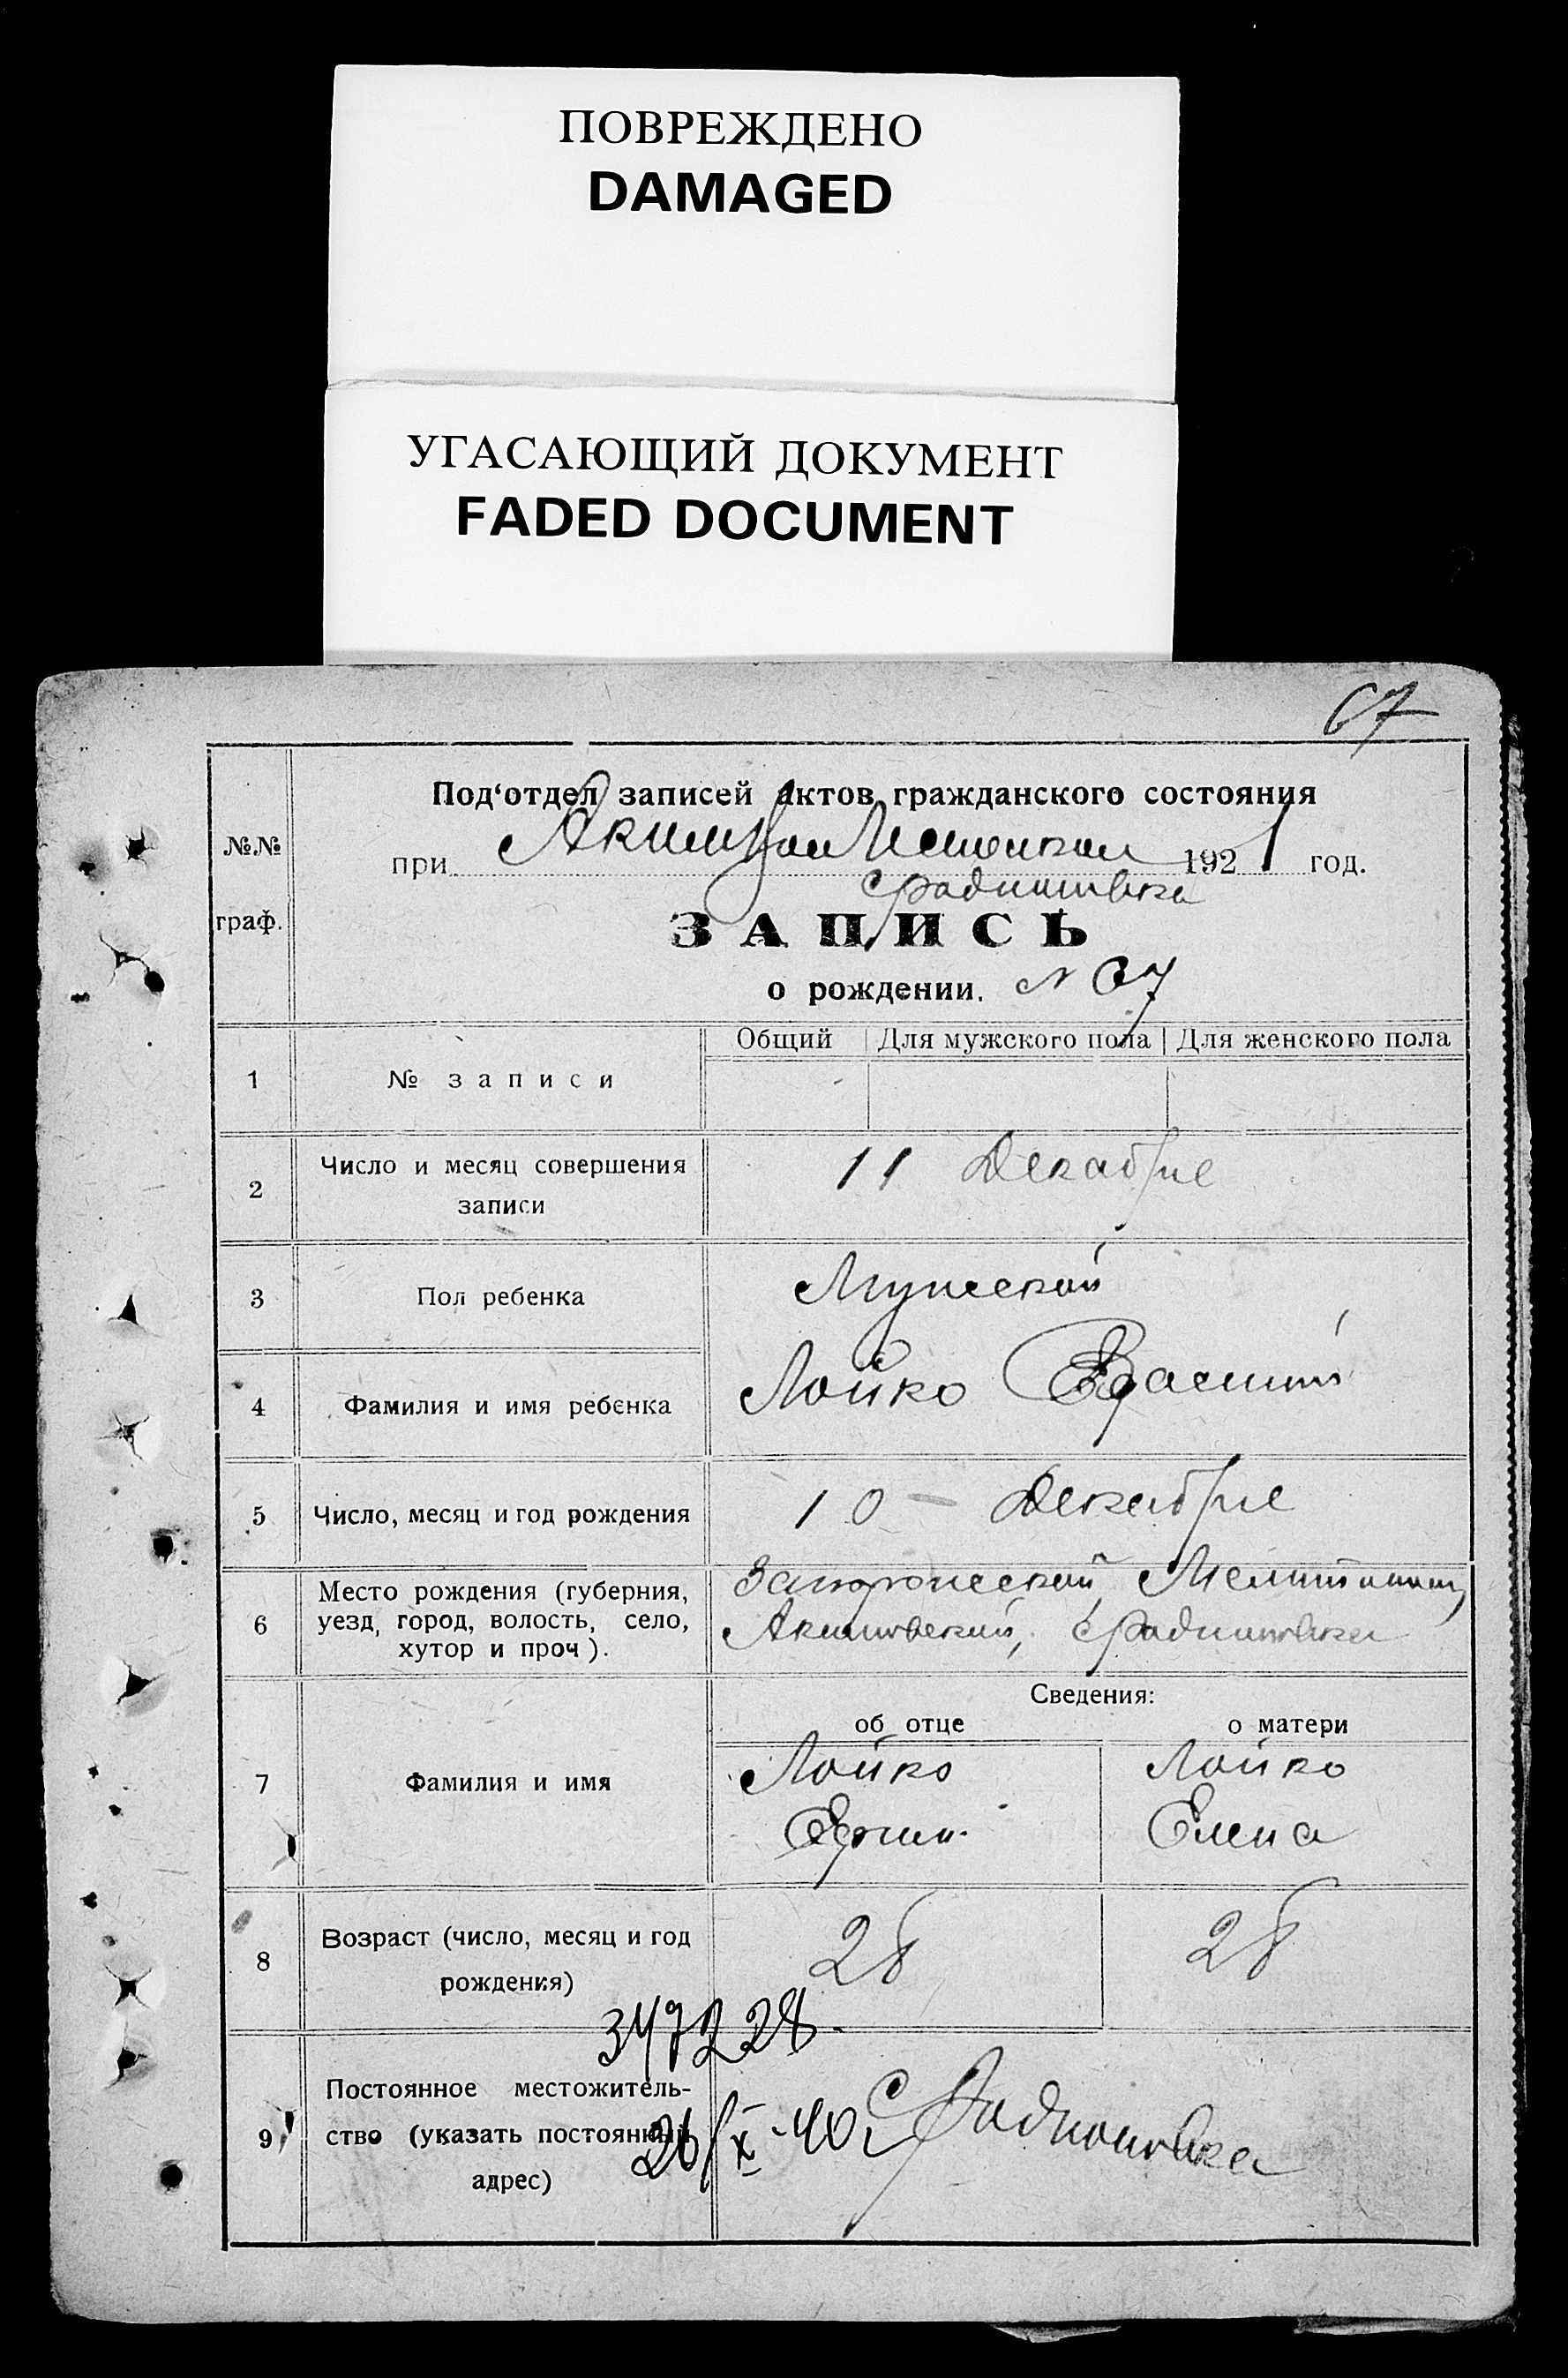 ПОВРЕЖДЕНО
DAMAGED
УГАСАЮЩИЙ ДОКУМЕНТ
FADED DOCUMENT
67
Под‘отдел записей актов гражданского состояния
№№ граф.
при 1921 год.
с Радионовка
ЗАПИСЬ
о рождении. N 67
Общий Для мужского пола Для женского пола
1 № записи
2 Число и месяц совершения записи 11 Декабре
3 Пол ребенка Мужской
4 Фамилия и имя ребенка Лойко
5 Число, месяц и год рождения 10 - Декабре
6 Место рождения (губерния, уезд, город, волость, село, хутор и проч). Запорожской
Акимовский, с Радионовка
Сведения:
об отце о матери
7 Фамилия и имя Лойко Лойко
Елена
8 Возраст (число, месяц и год рождения) 28 28
347228.
9 Постоянное местожитель-
ство (указать постоянный
адрес) 26/X-40 с Радионовка